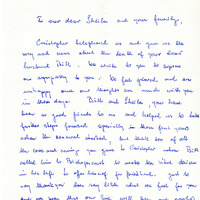 To our dear Sheila and your family,
Christopher telegraphed us and gave us the
very sad news about the death of your dear
husband Bill. We wish to you to express
our sympathy to you. We feel grieved and are
unhappy and our thoughts are much with you
in these days. Bill and Sheila, your have
been so good friends to us and helped us to take
further steps forward specially in those first years
when the renewal started, but this sea of all
the love and caring you gave to Christopher when Bill
called him to to make the vital decision
in his life. To offer himself for priesthood. Just to
say thankyou does very little what we feel for you
and we that our love will